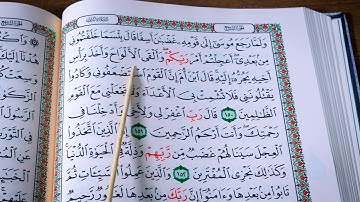 الجزء التاسع سورة الأعراف
وَلَمَّا رَجَعَ مُوسَىٰٓ إِلَىٰ قَوْمِهِۦ غَضْبَٰنَ أَسِفًا قَالَ بِئْسَمَا خَلَفْتُمُونِى
مِنۢ بَعْدِىٓ أَعَجِلْتُمْ أَمْرَ رَبِّكُمْ وَأَلْقَى ٱلْأَلْوَاحَ وَأَخَذَ بِرَأْسِ
أَخِيهِ يَجُرُّهُۥٓ إِلَيْهِ قَالَ ٱبْنَ أُمَّ إِنَّ ٱلْقَوْمَ ٱسْتَضْعَفُونِى وَكَادُوا۟
يَقْتُلُونَنِى فَلَا تُشْمِتْ بِىَ ٱلْأَعْدَآءَ وَلَا تَجْعَلْنِى مَعَ ٱلْقَوْمِ
ٱلظَّٰلِمِينَ ١٥٠ قَالَ رَبِّ ٱغْفِرْ لِى وَلِأَخِى وَأَدْخِلْنَا فِى
رَحْمَتِكَ وَأَنتَ أَرْحَمُ ٱلرَّٰحِمِينَ ١٥١ إِنَّ ٱلَّذِينَ ٱتَّخَذُوا۟
ٱلْعِجْلَ سَيَنَالُهُمْ غَضَبٌ مِّن رَّبِّهِمْ وَذِلَّةٌ فِى ٱلْحَيَوٰةِ ٱلدُّنْيَا
وَكَذَٰلِكَ نَجْزِى ٱلْمُفْتَرِينَ ١٥٢ وَٱلَّذِينَ عَمِلُوا۟ ٱلسَّيِّـَٔاتِ ثُمَّ
تَابُوا۟ مِنۢ بَعْدِهَا وَءَامَنُوٓا۟ إِنَّ رَبَّكَ مِنۢ بَعْدِهَا لَغَفُورٌ رَّحِيمٌ